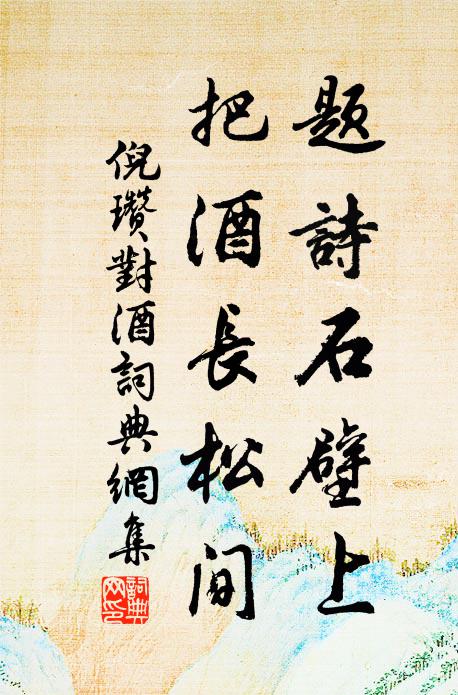 題詩石壁上
把酒長松間
倪瓚對酒詞典網集
詞典
网印